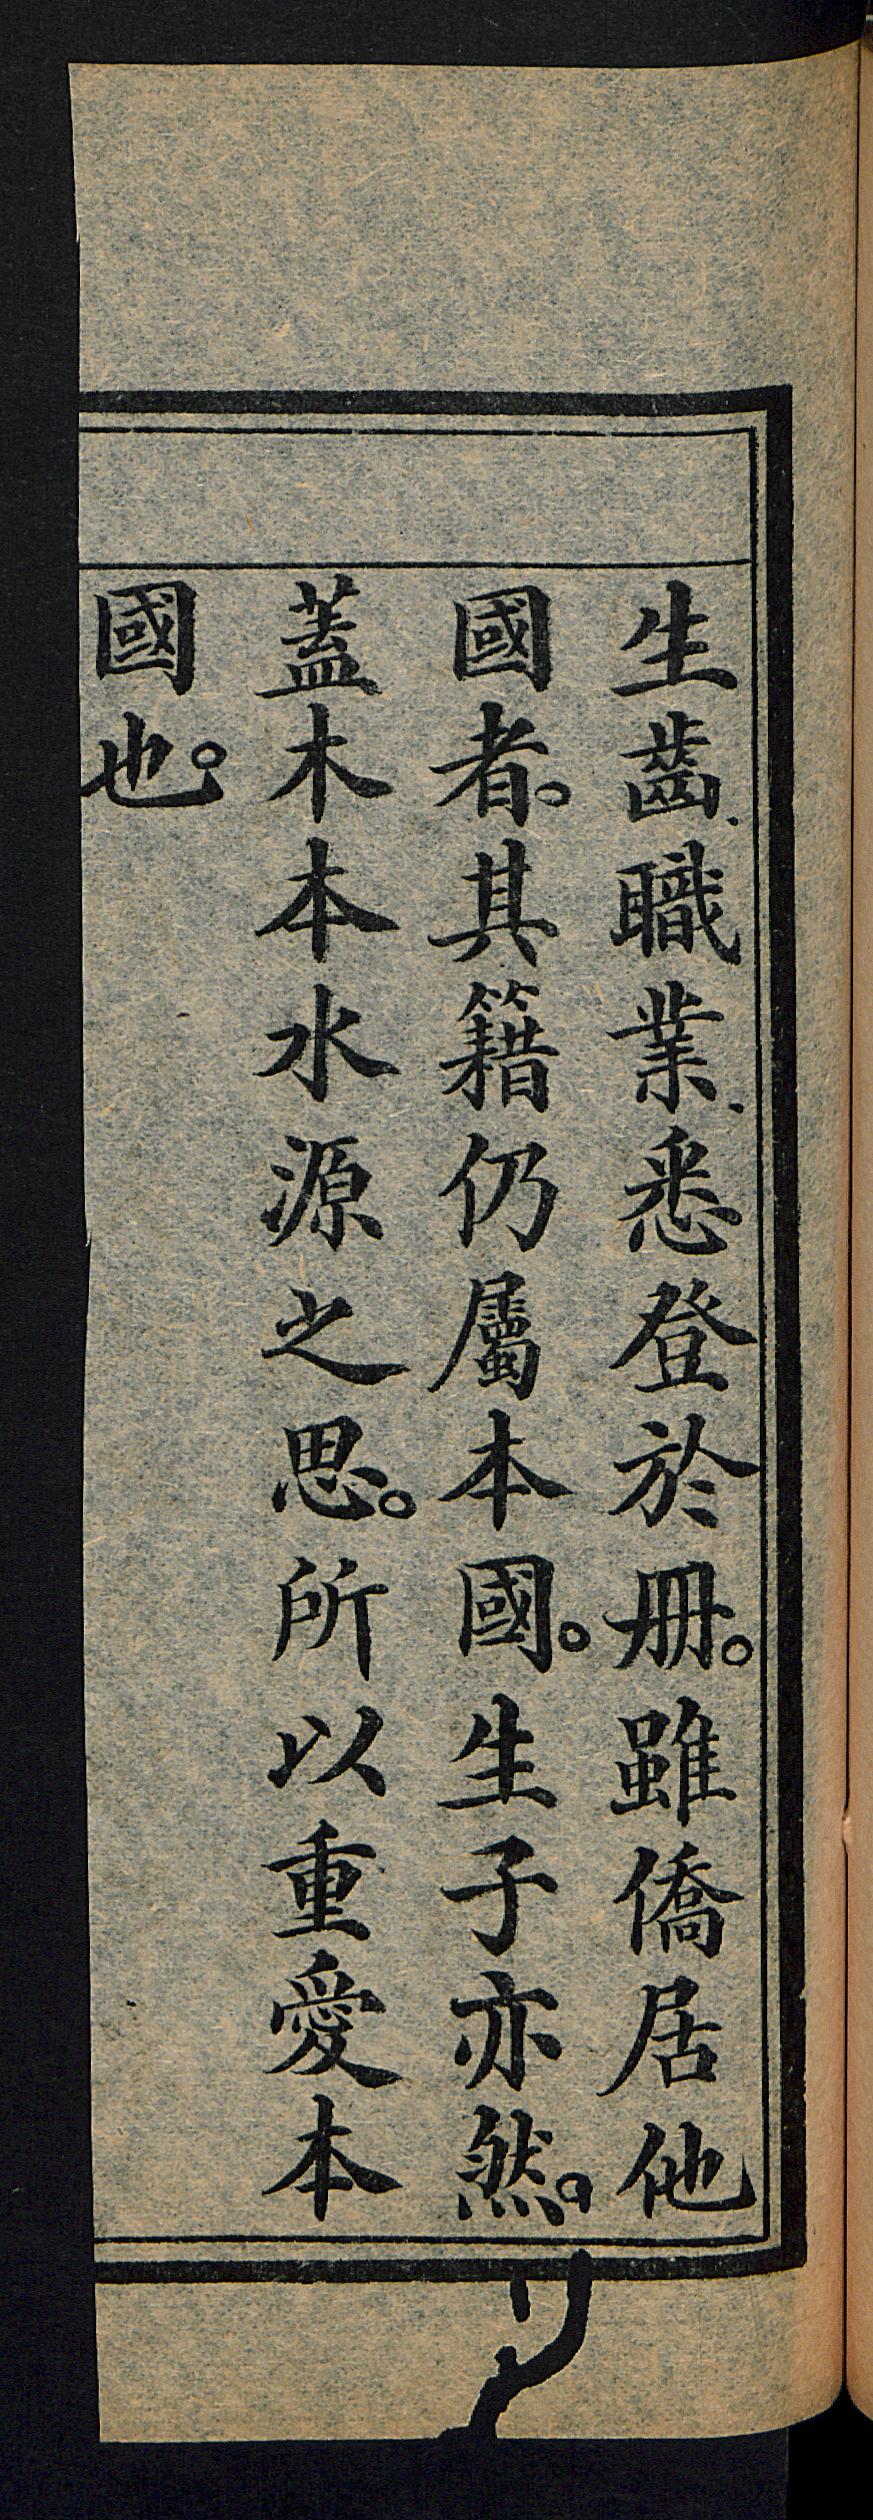 生齒、職業、悉登於册。雖僑居他
國者。其籍仍屬本國。生子亦然。
蓋木本水源之思。所以重愛本
國也。